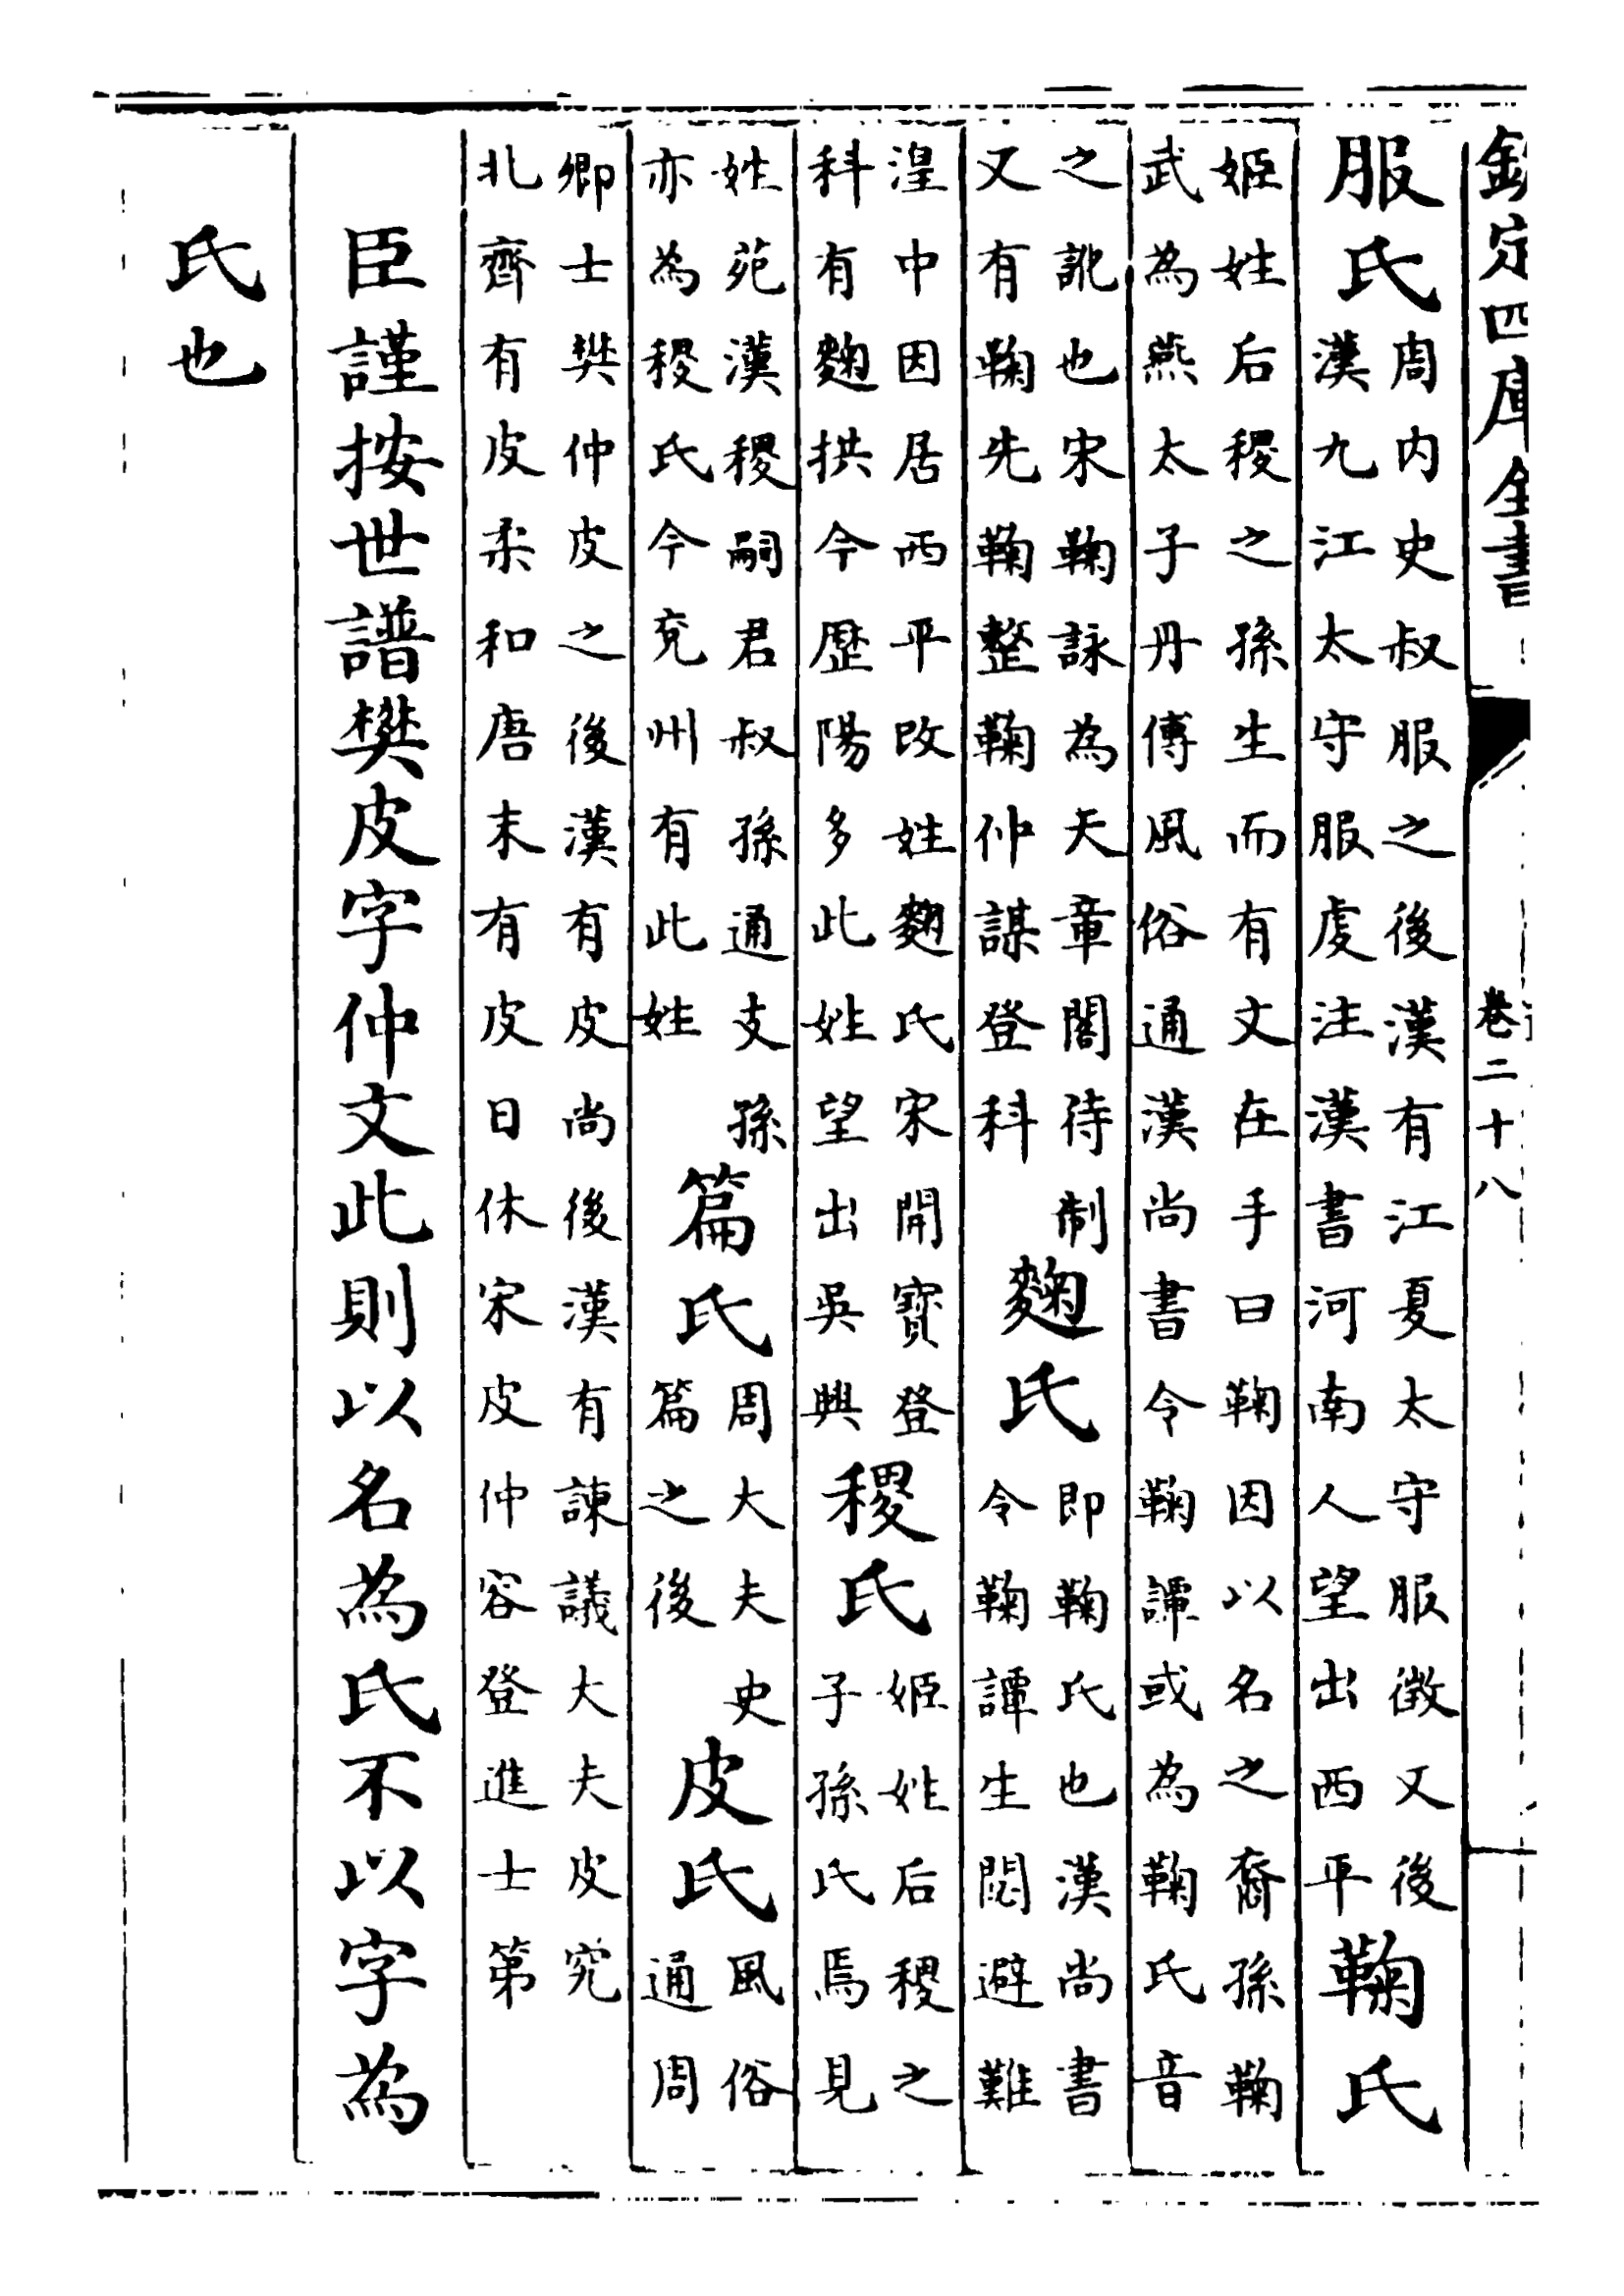 欽定四庫全書
卷二十八
服氏
周内史叔服之後漢有江夏太守服徴又後
漢九江太守服虔注漢書河南人望出西平
鞠氏
姬姓后稷之孫生而有文在手曰鞠因以名之裔孫鞠
武為燕太子丹傅風俗通漢尚書令鞠譚或為鞠氏音
之訛也宋鞠詠為天章閣待制
又有鞠先鞠整鞠仲謀登科
麴氏
即鞠氏也漢尚書
令鞠譚生閟避難
湟中因居西平改姓麴氏宋開寶登
科有麴拱今歷陽多此姓望出吳興
稷氏
姬姓后稷之
子孫氏焉見
姓苑漢稷嗣君叔孫通支孫
亦為稷氏今兖州有此姓
篇氏
周大夫史
篇之後
皮氏
風俗
通周
卿士樊仲皮之後漢有皮尚後漢有諫議大夫皮究
北齊有皮柔和唐末有皮日休宋皮仲容登進士第
臣謹按世譜樊皮字仲文此則以名為氏不以字為
氏也